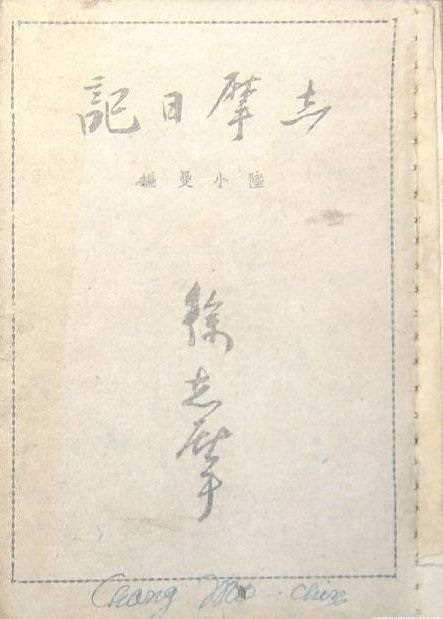 志摩日記
陸小曼編
徐志摩
Chang